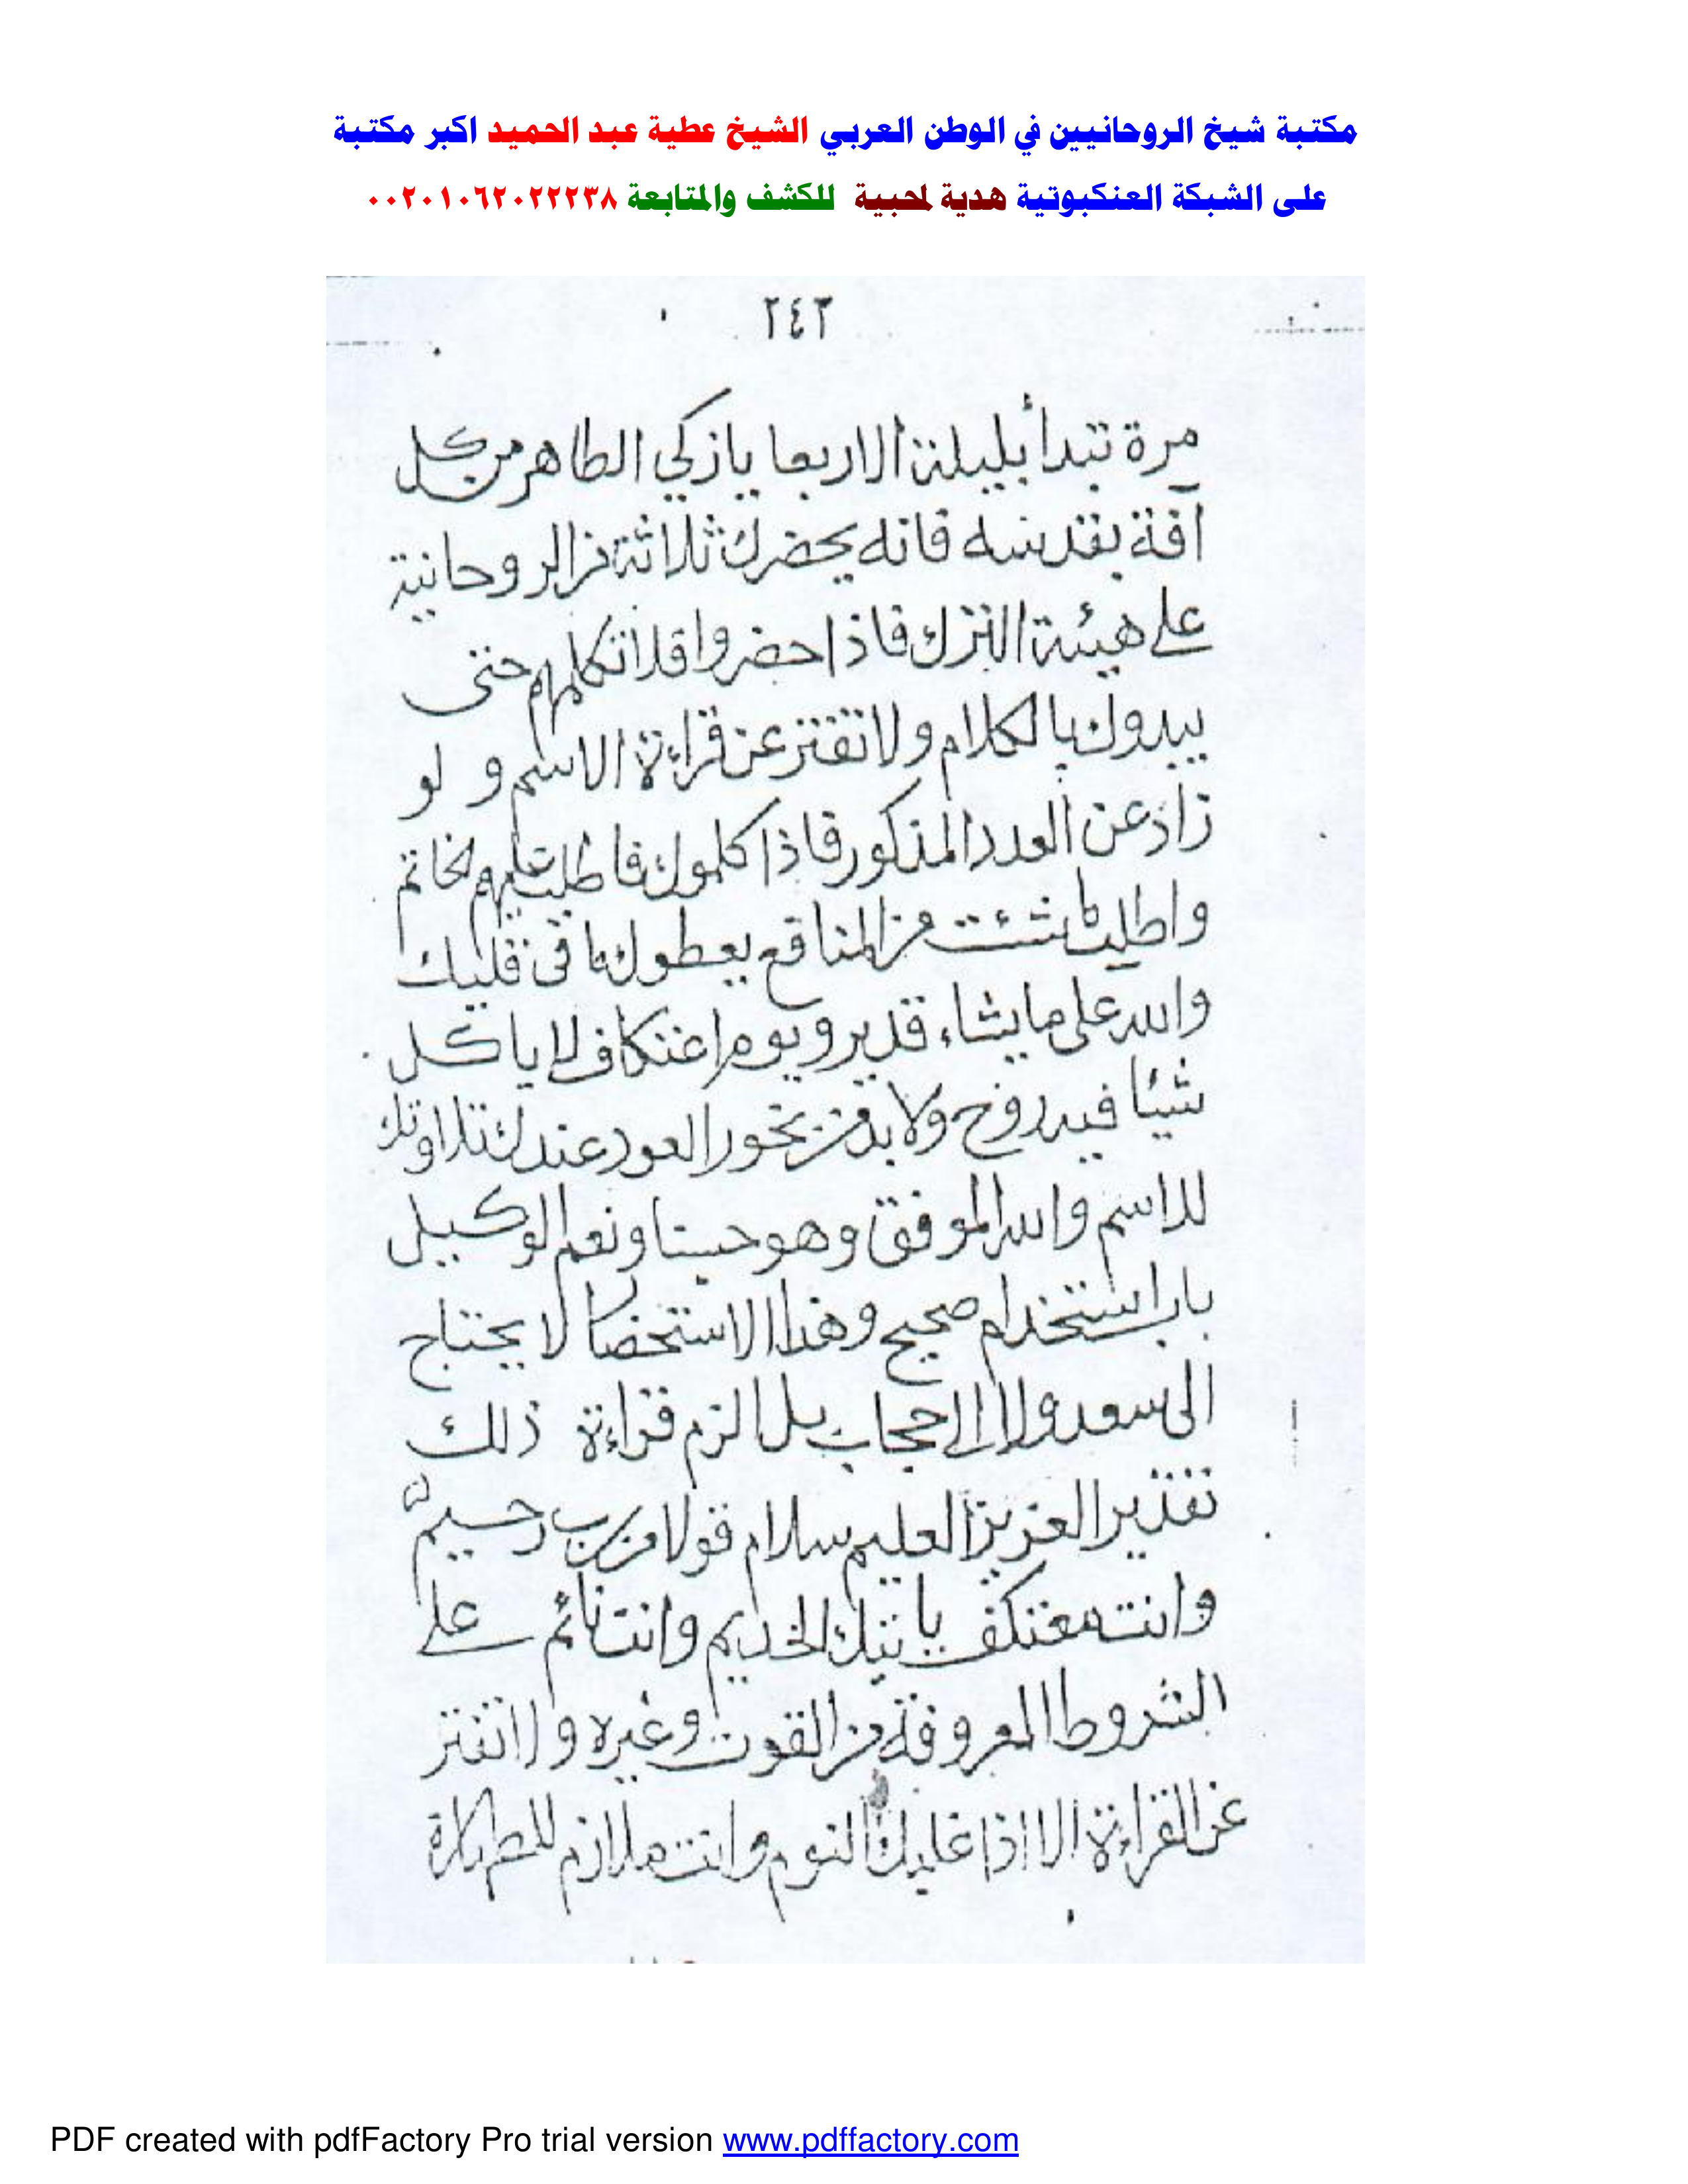 مكتبة شيخ الروحانيين في الوطن العربي الشيخ عطية عبد الحميد اكبر مكتبة
على الشبكة العنكبوتية هدية لمحبية للكشف والمتابعة ٠٠٢٠١٠٦٢٠٢٢٢٣٨
٢٤٢
مرة تبدأ بليلة الاربعا يا زكي الطاهر من كل
آفة بقدسه فانه يحضرك ثلاثة من الروحانية
على هيئة الترك فاذا حضروا فلا تكلمهم حتى
يبدوك بالكلام ولا تفتر عن قراءة الاسم و لو
زاد عن العدد المذكور فاذا كلموك فاطلب عليهم الخاتم
واطلب ما شئت من المنافع يعطوك ما في قلبك
والله على ما يشاء قدير ويوم اعتكافك لا ياكل
شيئا فيه روح ولا بد من بخور العود عندك تلاوتك
للاسم والله الموفق وهو حسبنا ونعم الوكيل
باب استخدام صحيح وهذا الاستخضا لا يحتاج
الى سعد ولا الى حجاب بل الزم قراءة ذلك
تقدير العزيز العليم سلام قولا من رب رحيم
وانت معتكف ياتيك الخديم وانت نائم على
الشروط المعروفة من القوت وغيره ولا تفتر
عن القراءة الا اذا غلبك النوم وانت ملازم للطهارة
PDF created with pdfFactory Pro trial version www.pdffactory.com